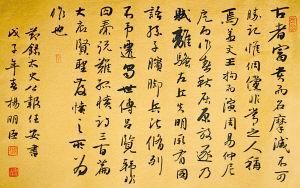 古者富貴而名摩滅不可
勝記惟倜儻非常之人稱
焉蓋文王拘而演周易仲尼
厄而作春秋屈原放逐乃
賦離騷左丘失明厥有國
語孫子臏腳兵法修列
不韋遷蜀世傳呂覽韓非
囚秦說難孤憤詩三百篇
大底賢聖發憤之所為
作也
錄太史公報任安書
戊子年 楊明臣